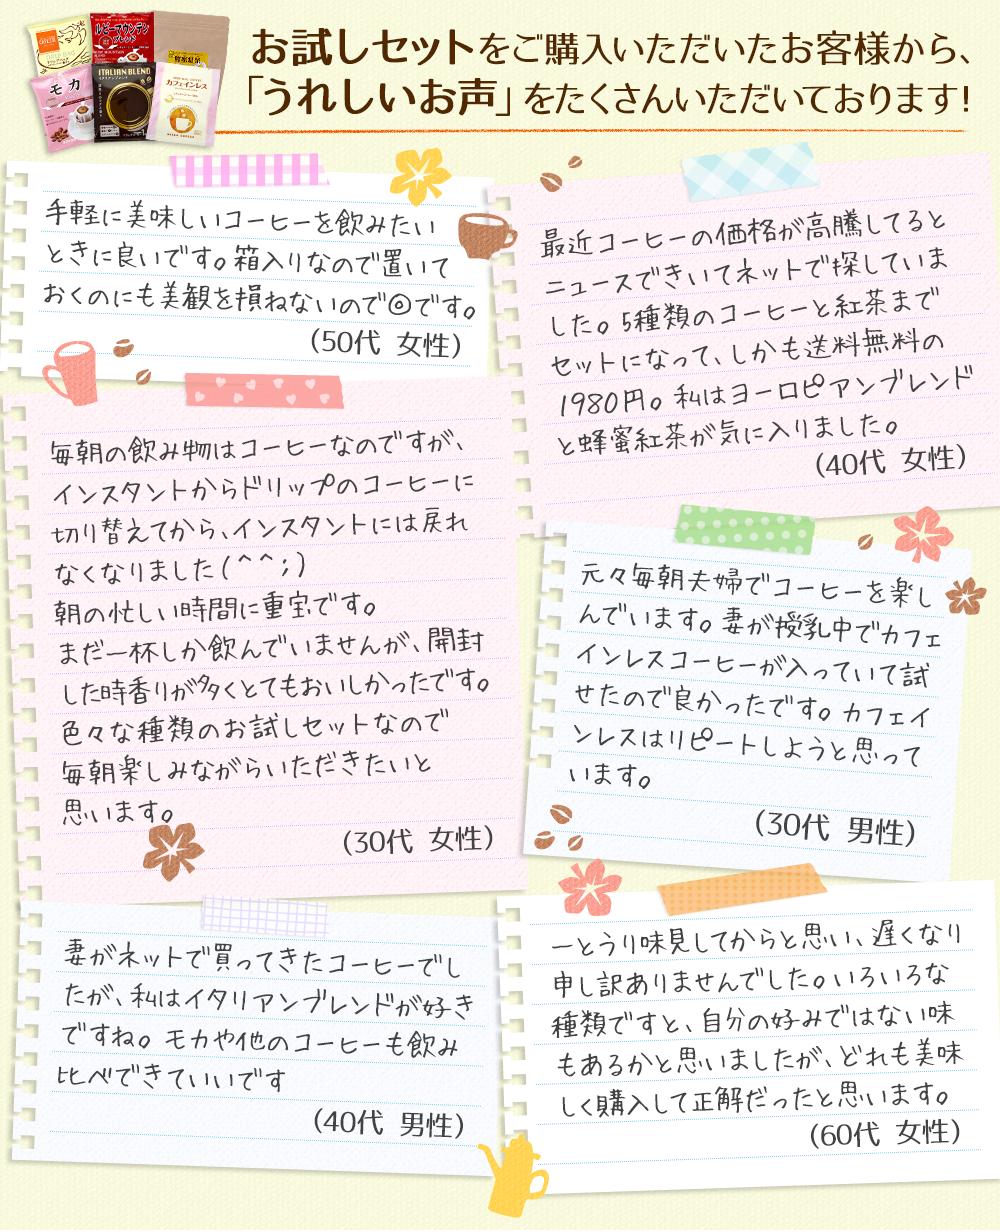 お試しセットをご購入いただいたお客様から、
「うれしいお声」をたくさんいただいております!
ルビーマウンテン
ブレンド
モカ
ITALIAN BLEND
カフェインレス
手軽に美味しいコーヒーを飲みたい
ときに良いです。箱入りなので置いて
おくのにも美観を損ねないので◎です。
(50代 女性)
最近コーヒーの価格が高騰してると
ニュースできいてネットで探していま
した。5種類のコーヒーと紅茶まで
セットになって、しかも送料無料の
1980円。私はヨーロピアンブレンド
と蜂蜜紅茶が気に入りました。
(40代 女性)
毎朝の飲み物はコーヒーなのですが、
インスタントからドリップのコーヒーに
切り替えてから、インスタントには戻れ
なくなりました(^^;)
朝の忙しい時間に重宝です。
まだ一杯しか飲んでいませんが、開封
した時香りが多くとてもおいしかったです。
色々な種類のお試しセットなので
毎朝楽しみながらいただきたいと
思います。
(30代 女性)
元々毎朝夫婦でコーヒーを楽し
んでいます。妻が授乳中でカフェ
インレスコーヒーが入っていて試
せたので良かったです。カフェイ
ンレスはリピートしようと思って
います。
(30代 男性)
妻がネットで買ってきたコーヒーでし
たが、私はイタリアンブレンドが好き
ですね。モカや他のコーヒーも飲み
比べできていいです
(40代 男性)
一とうり味見してからと思い、遅くなり
申し訳ありませんでした。いろいろな
種類ですと、自分の好みではない味
もあるかと思いましたが、どれも美味
しく購入して正解だったと思います。
(60代 女性)